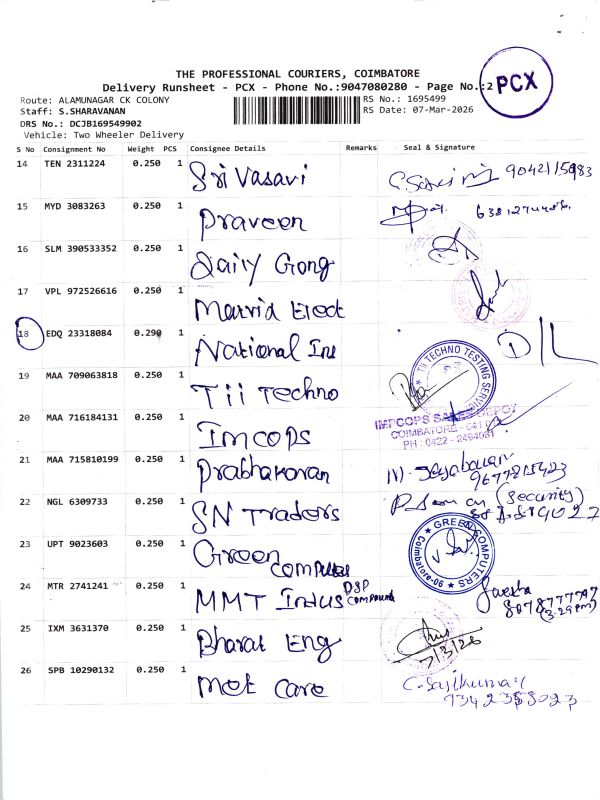 THE PROFESSIONAL COURIERS, COIMBATORE
Delivery Runsheet - PCX - Phone No.:9047080280 - Page No.:2
PCX
Route: ALAMUNAGAR CK COLONY
RS No.: 1695499
Staff: S.SHARAVANAN
RS Date: 07-Mar-2026
DRS No.: DCJB169549902
Vehicle: Two Wheeler Delivery
S No Consignment No Weight PCS Consignee Details Remarks Seal & Signature
14 TEN 2311224 0.250 1 Sri Vasavi
15 MYD 3083263 0.250 1 Praveen
16 SLM 390533352 0.250 1 Dairy Gong
17 VPL 972526616 0.250 1
18 EDQ 23318084 0.290 1 National Ins
19 MAA 709063818 0.250 1 Tii Techno
TII TECHNO TESTING SERVICES
20 MAA 716184131 0.250 1 Imcops
IMPCOPS SALES DEPOT
COIMBATORE - 641
PH : 0422 - 2494061
21 MAA 715810199 0.250 1 Prabhakaran
22 NGL 6309733 0.250 1 SN Traders (Security)
23 UPT 9023603 0.250 1 Green
GREEN COMPUTERS
24 MTR 2741241 0.250 1 MMT Indus DSP compound
8078777797
(3.29pm)
25 IXM 3631370 0.250 1 Bharat Eng
7/3/26
26 SPB 10290132 0.250 1 Met Care